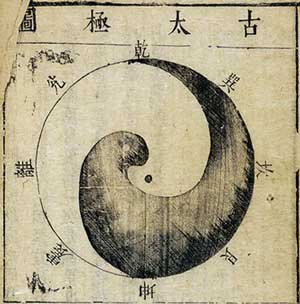 古太極圖
乾
兌
巽
離
坎
震
艮
坤